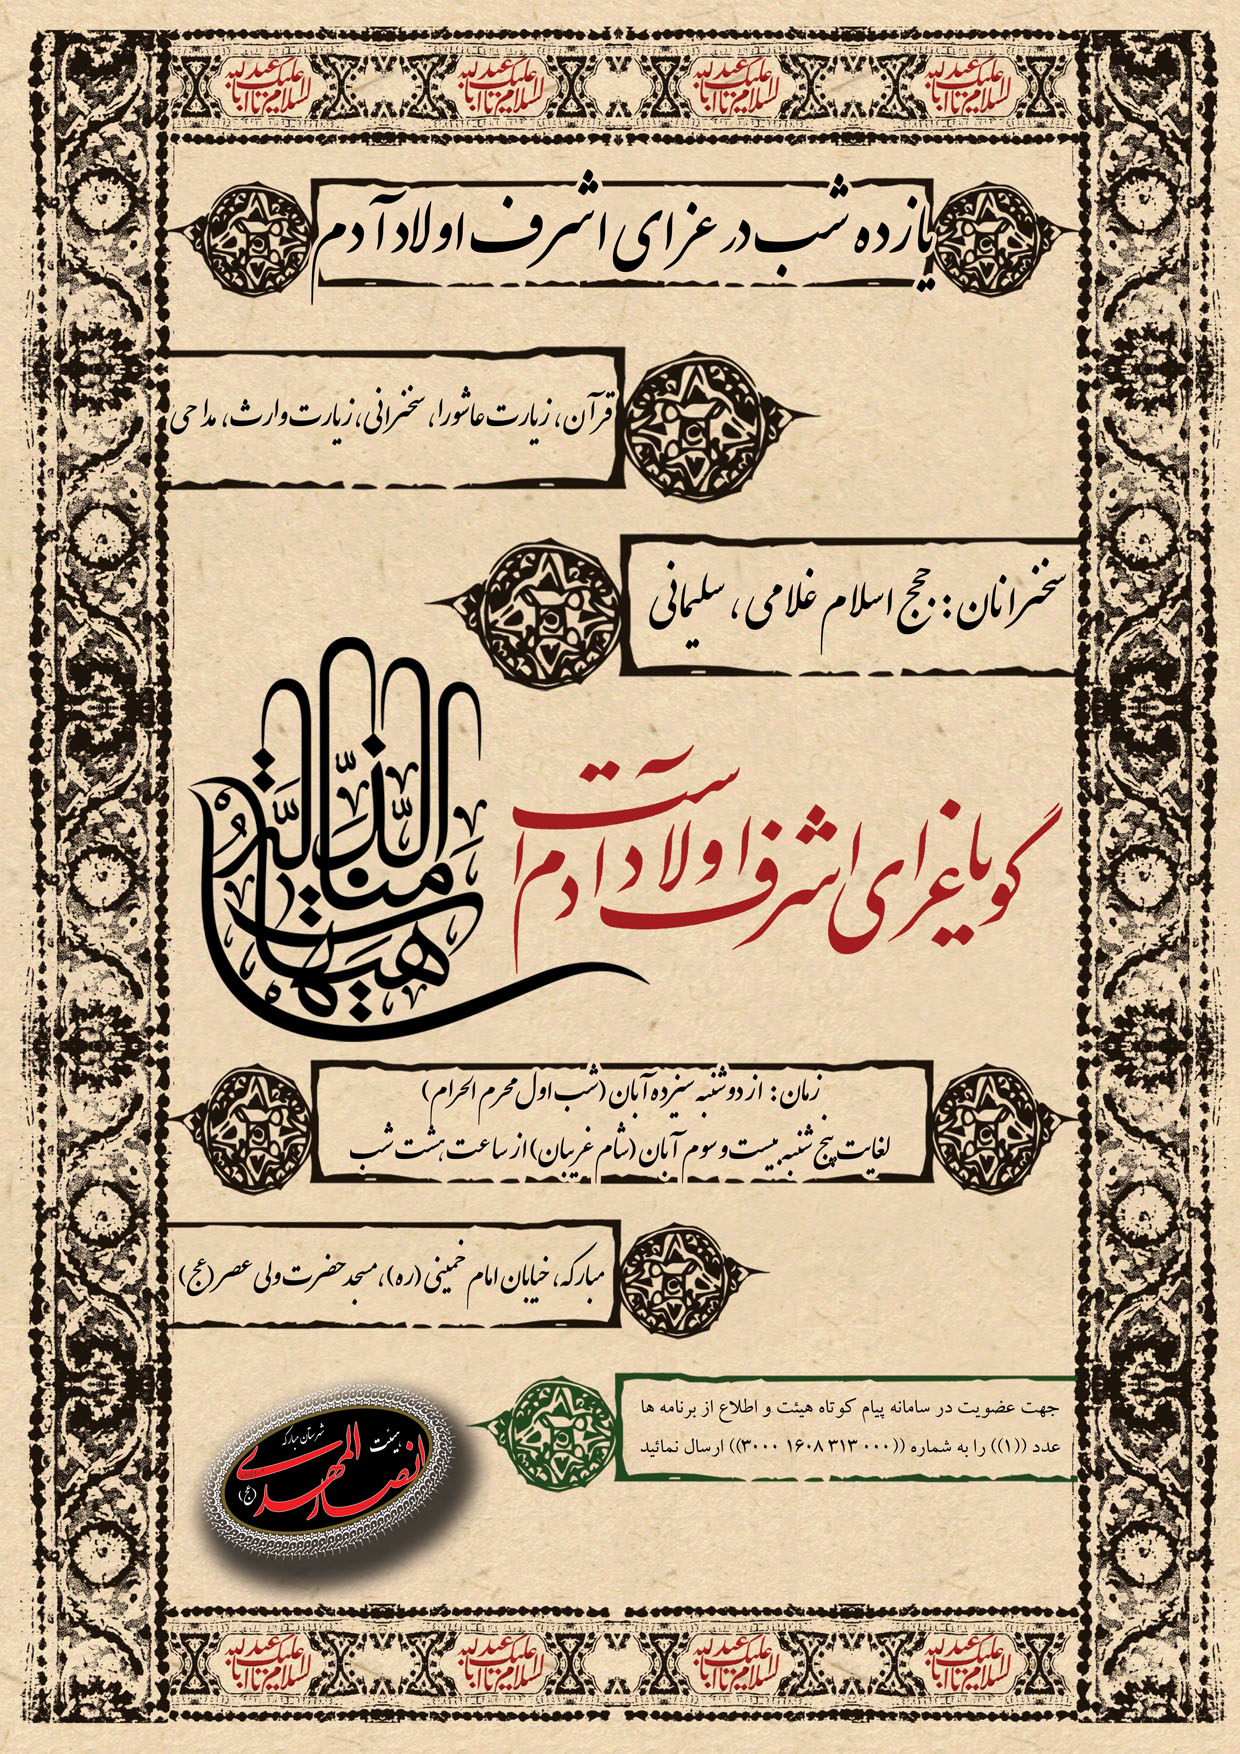 السلام علیک یا ابا عبدالله السلام علیک یا ابا عبدالله السلام علیک یا ابا عبدالله السلام علیک یا ابا عبدالله
یازده شب در عزای اشرف اولاد آدم
قرآن، زیارت عاشورا، سخنرانی، زیارت وارث، مداحی
سخنرانان: حجج اسلام غلامی، سلیمانی
هیهات منا الذلة
گویا عزای اشرف اولاد آدم است
زمان: از دوشنبه سیزده آبان (شب اول محرم الحرام)
لغایت پنج شنبه بیست و سوم آبان (شام غریبان) از ساعت هشت شب
مبارکه، خیابان امام خمینی (ره)، مسجد حضرت ولی عصر (عج)
جهت عضویت در سامانه پیام کوتاه هیئت و اطلاع از برنامه ها
عدد ((۱)) را به شماره ((۳۰۰۰ ۱۶۰۸ ۳۱۳ ۰۰۰)) ارسال نمائید
هیئت انصار المهدی (عج) شهرستان مبارکه
السلام علیک یا ابا عبدالله السلام علیک یا ابا عبدالله السلام علیک یا ابا عبدالله السلام علیک یا ابا عبدالله